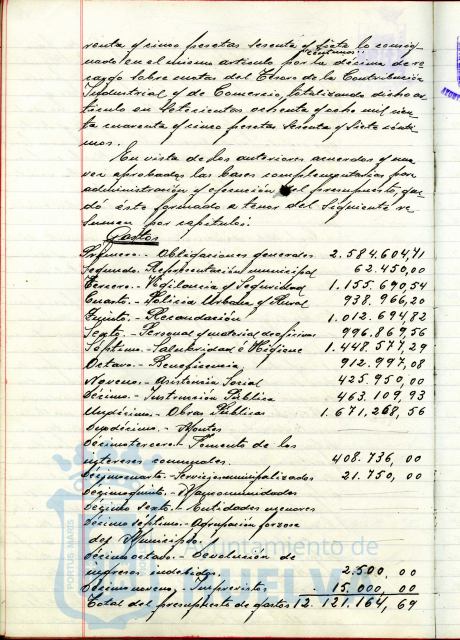 renta y cinco pesetas sesenta y siete céntimos lo consig-
nado en el mismo artículo por la décima de re-
cargo sobre cuotas del Tesoro de la Contribución
Industrial y de Comercio, totalizando dicho ar-
tículo en setecientas ochenta y ocho mil cien-
ta cuarenta y cinco pesetas sesenta y siete cénti-
mos.
En vista de los anteriores acuerdos y una
vez aprobadas las bases complementarias para
administración y ejecución del presupuesto, que-
dó éste formado a tenor del siguiente re-
sumen por capítulos:
Gastos
Primero.- Obligaciones generales 2.584.604,71
Segundo.- Representación municipal 62.450,00
Tercero.- Vigilancia y Seguridad 1.155.690,54
Cuarto.- Policía Urbana y Rural 938.966,20
Quinto.- Recaudación 1.012.694,82
Sexto.- Personal y material de oficinas 996.869,56
Séptimo.- Salubridad é Higiene 1.448.577,29
Octavo.- Beneficencia 912.997,08
Noveno.- Asistencia Social 425.950,00
Décimo.- Instrucción Pública 463.109,93
Undécimo.- Obras Públicas 1.671.268,56
Duodécimo.- Montes
Décimotercero.- Fomento de los
intereses comunales. 408.736,00
Décimocuarto.- Servicios municipalizados 21.750,00
Décimoquinto.- Mancomunidades
Décimo sexto.- Entidades menores
Décimo séptimo.- Agrupación forzosa
del Municipio.
Décimo octavo.- Devolución de
ingresos indebidos. 2.500,00
Décimo noveno.- Imprevistos 15.000,00
Total del presupuesto de gastos 12.121.164,69
Ayuntamiento de
HUELVA
PORTUS MARIS